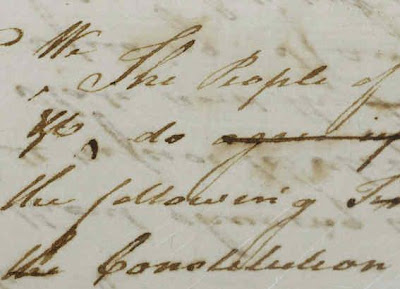 We
The People of
do agree
the following
the Constitution